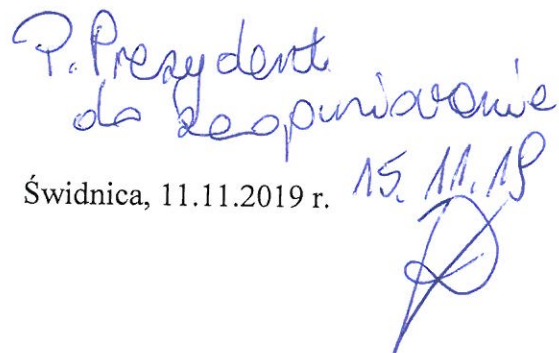 P. Prezydent
do zaopiniowania
Świdnica, 11.11.2019 r. 15.11.19